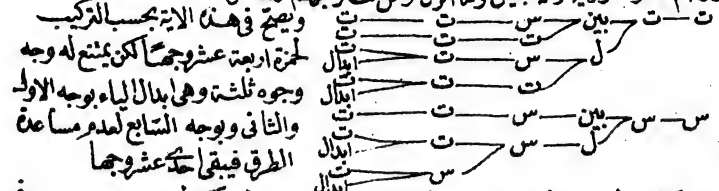 ويصح فى هذه الاية بحسب التركيب
لحمزة اربعة عشر وجهاً لكن يمتنع له وجه
وجوه ثلثة وهى ابدال الياء بوجه الاول
والثانى وبوجه السابع لعدم مساعدة
الطرق فيبقى احدى عشر وجها
ت ت بين س ت ت
ت ت
ل س ت ت ابدال
ت ت ابدال
س س بين س ت ت
ل س ت ت ابدال
س ت ابدال